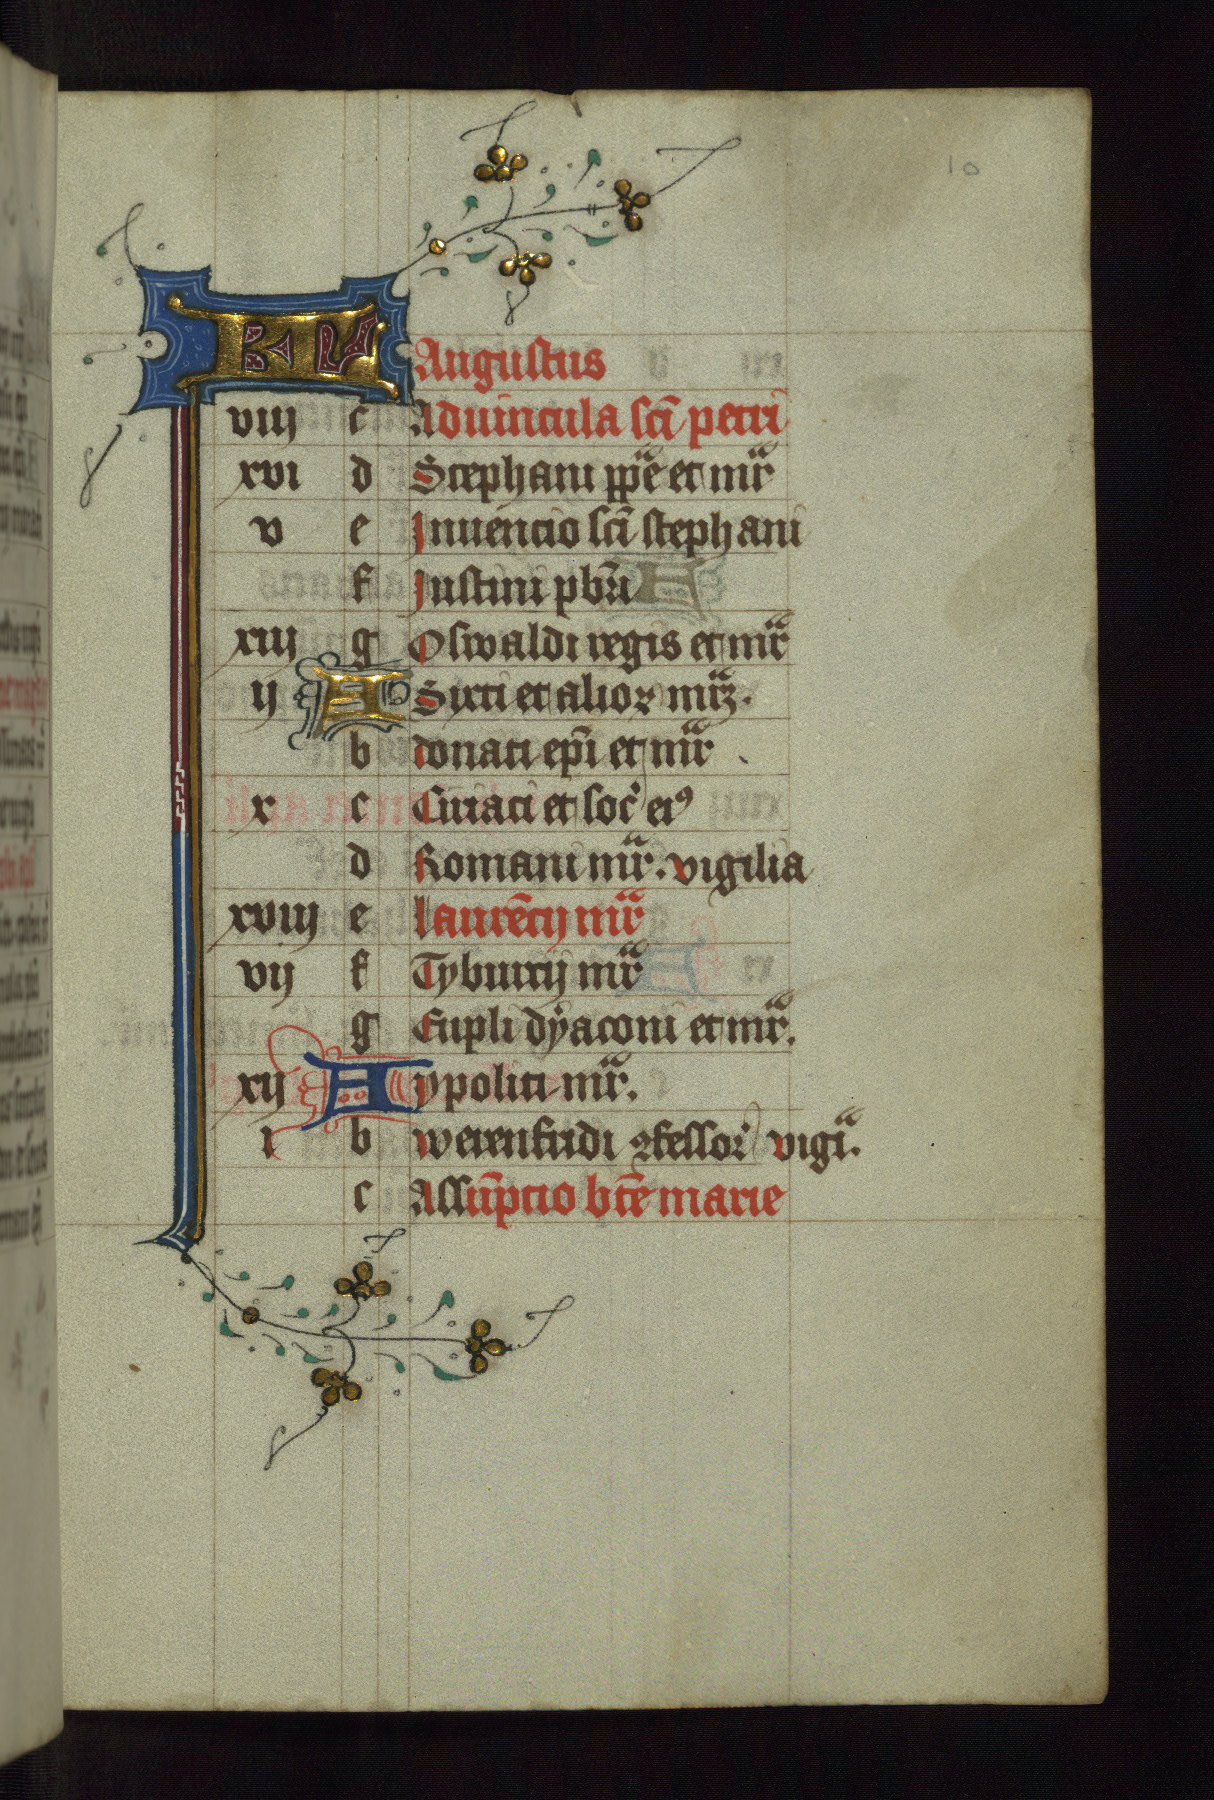 10
KL Augustus
viij c Aduincula scī petri
xvi d Stephani ppe et mr̄
v e Inuencio scī stephani
f Iustini pbri
xiij g Oswaldi regis et mr̄
ij A Sixti et alioꝝ mr̄ꝫ.
b donati epī et mr̄
x c Ciriaci et soc̄ eiꝰ
d Romani mr̄. vigilia
xviij e laurēcij mr̄
vij f Tyburcij mr̄
g Eupli dyaconi et mr̄.
xij A ypoliti mr̄.
i b werenfridi ꝯfessor̄ vigī.
c Assūpcio btē marie